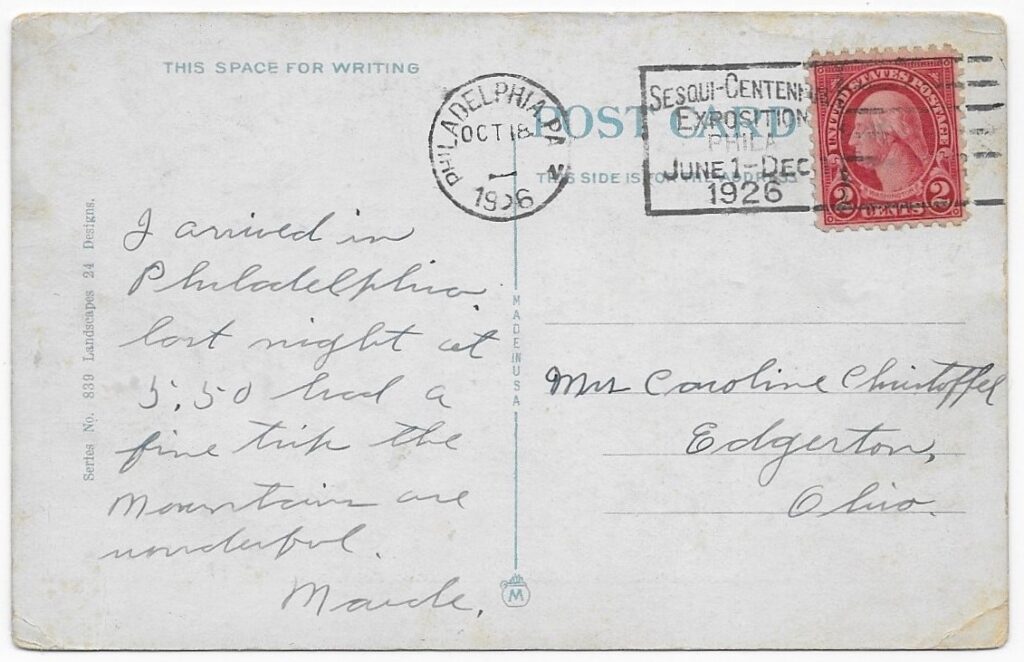 THIS SPACE FOR WRITING
POST CARD
THIS SIDE IS FOR THE ADDRESS
PHILADELPHIA, PA
OCT 18
1926
SESQUI-CENTENNIAL
EXPOSITION
PHILA
JUNE 1-DEC 1
1926
UNITED STATES POSTAGE
WASHINGTON
2 CENTS 2
Series No. 839 Landscapes 24 Designs.
I arrived in
Philadelphia
last night at
5.50 had a
fine trip the
Mountains are
wonderful.
Maude.
MADE IN USA
M
Mrs Caroline Christoffel
Edgerton,
Ohio.